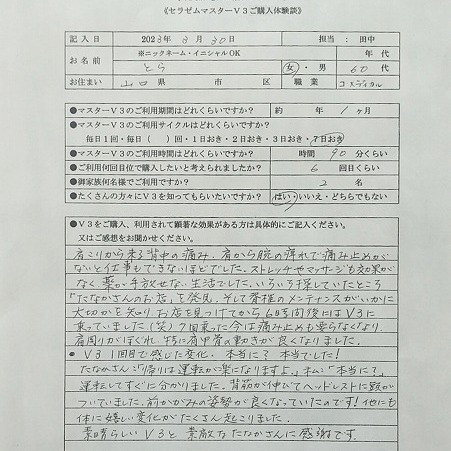 《セラゼムマスターV3ご購入体験談》
記入日 2023年 3月 30日 担当：田中
お名前 ※ニックネーム・イニシャルOK 年代
とら 女・男 60代
お住まい 山口県 市 区 職業 コメディカル
●マスターV3のご利用期間はどれくらいですか？ 約 年 1ヶ月
●マスターV3のご利用サイクルはどれくらいですか？
毎日1回・毎日( )回・1日おき・2日おき・3日おき・7日おき
●マスターV3のご利用時間はどれくらいですか？ 時間 90分くらい
●ご利用何回目位で購入したいと考えられましたか？ 6回目くらい
●御家族何名様でご利用ですか？ 2名
●たくさんの方々にV3を知ってもらいたいですか？ はい・いいえ・どちらでもない
●V3をご購入、利用されて顕著な効果がある方は具体的にご記入ください。
又はご感想をお聞かせください。
肩こりから来る背中の痛み、肩から腕の痺れで痛み止めが
ないと仕事もできないほどでした。ストレッチやマッサージも効果が
なく薬が手放せない生活でした。いろいろ探していたところ
「たなかさんのお店」を発見。そして脊椎のメンテナンスがいかに
大切かを知りお店を見つけてから6時間後にはV3に
乗っていました(笑)7回乗った今は痛み止めも要らなくなり
肩周りがほぐれ特に肩甲骨の動きが良くなりました。
・V3 1回目で感じた変化。本当に？本当でした！
たなかさん「帰りは運転が楽になりますよ」私「本当に？」
運転してすぐに分かりました。背筋が伸びてヘッドレストに頭が
ついていました。前かがみの姿勢が良くなっていたのです！他にも
体に嬉しい変化がたくさん起こりました。
素晴らしいV3と素敵なたなかさんに感謝です。